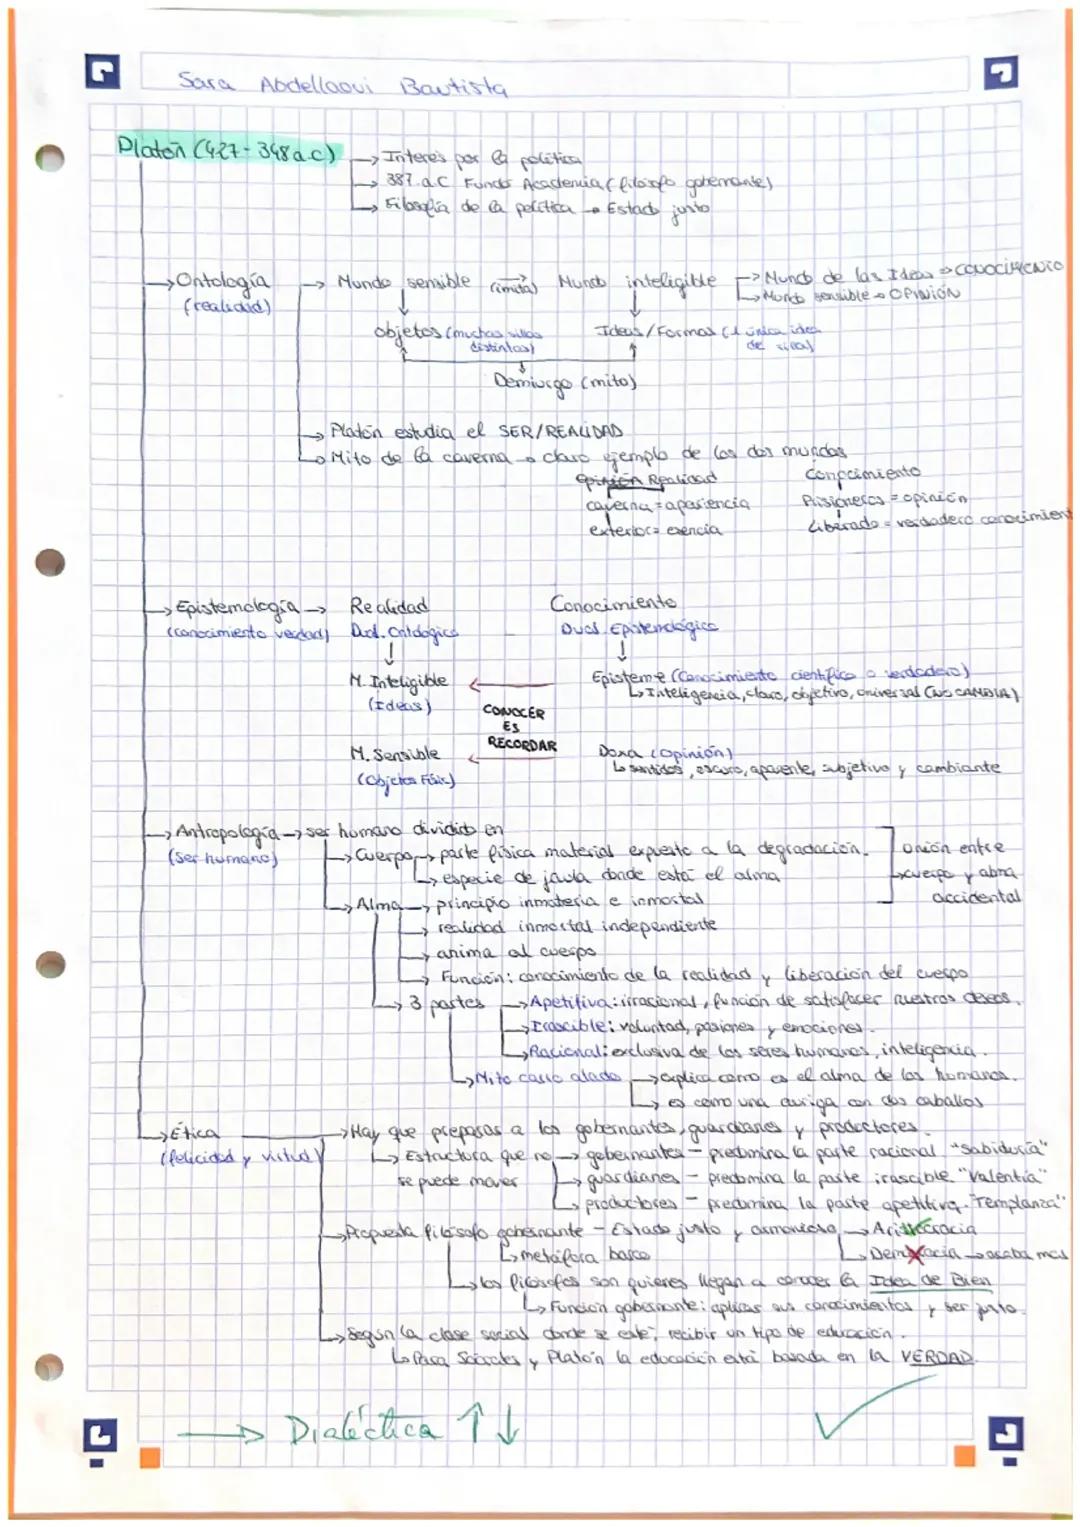 Sara Abdellaoui Bautista
Platón (427-348 a.c) → Interés por la política
→ 387 a.C Fundó Academia (filósofo gobernante)
→ Filosofía de la política → Estado justo
→ Ontología → Mundo sensible (imita) Mundo inteligible → Mundo de las Ideas → CONOCIMIENTO
(realidad) → Mundo sensible → OPINIÓN
objetos (muchas sillas distintas) Ideas/Formas (1 única idea de silla)
Demiurgo (mito)
→ Platón estudia el SER/REALIDAD
→ Mito de la caverna → claro ejemplo de los dos mundos
Opinión Realidad Conocimiento
caverna = apariencia Prisioneros = opinión
exterior = esencia Liberado = verdadero conocimient
→ Epistemología → Realidad Conocimiento
(conocimiento verdad) Dual. Ontológico Dual. Epistemológico
M. Inteligible Episteme (Conocimiento científico o verdadero)
(Ideas) → Inteligencia, claro, objetivo, universal (NO CAMBIA)
CONOCER
ES
RECORDAR
M. Sensible Doxa (opinión)
(Objetos Físic) → sentidos, oscuro, aparente, subjetivo y cambiante
→ Antropología → ser humano dividido en
(ser humano) → Cuerpo → parte física material expuesto a la degradación. unión entre
→ especie de jaula donde está el alma → cuerpo y alma
→ Alma → principio inmateria e inmortal accidental
→ realidad inmortal independiente
→ anima al cuerpo
→ Función: conocimiento de la realidad y liberación del cuerpo
→ 3 partes → Apetitiva: irracional, función de satisfacer nuestros deseos.
→ Irascible: voluntad, pasiones y emociones.
→ Racional: exclusiva de los seres humanos, inteligencia.
→ Mito carro alado → explica como es el alma de los humanos.
→ es como una auriga con dos caballos
→ Ética → Hay que preparar a los gobernantes, guardianes y productores.
(felicidad y virtud) → Estructura que no → gobernantes - predomina la parte racional. "Sabiduría"
se puede mover → guardianes - predomina la parte irascible "Valentía"
→ productores - predomina la parte apetitiva. "Templanza"
→ Propuesta filósofo gobernante - Estado justo y armonioso → Aristocracia
→ metáfora barco → Democracia → acaba mal
→ los filósofos son quienes llegan a conocer la Idea de Bien
→ Función gobernante: aplicar sus conocimientos y ser justo.
→ Según la clase social donde se esté, recibir un tipo de educación.
→ Para Sócrates y Platón la educación está basada en la VERDAD.
→ Dialéctica ↑↓